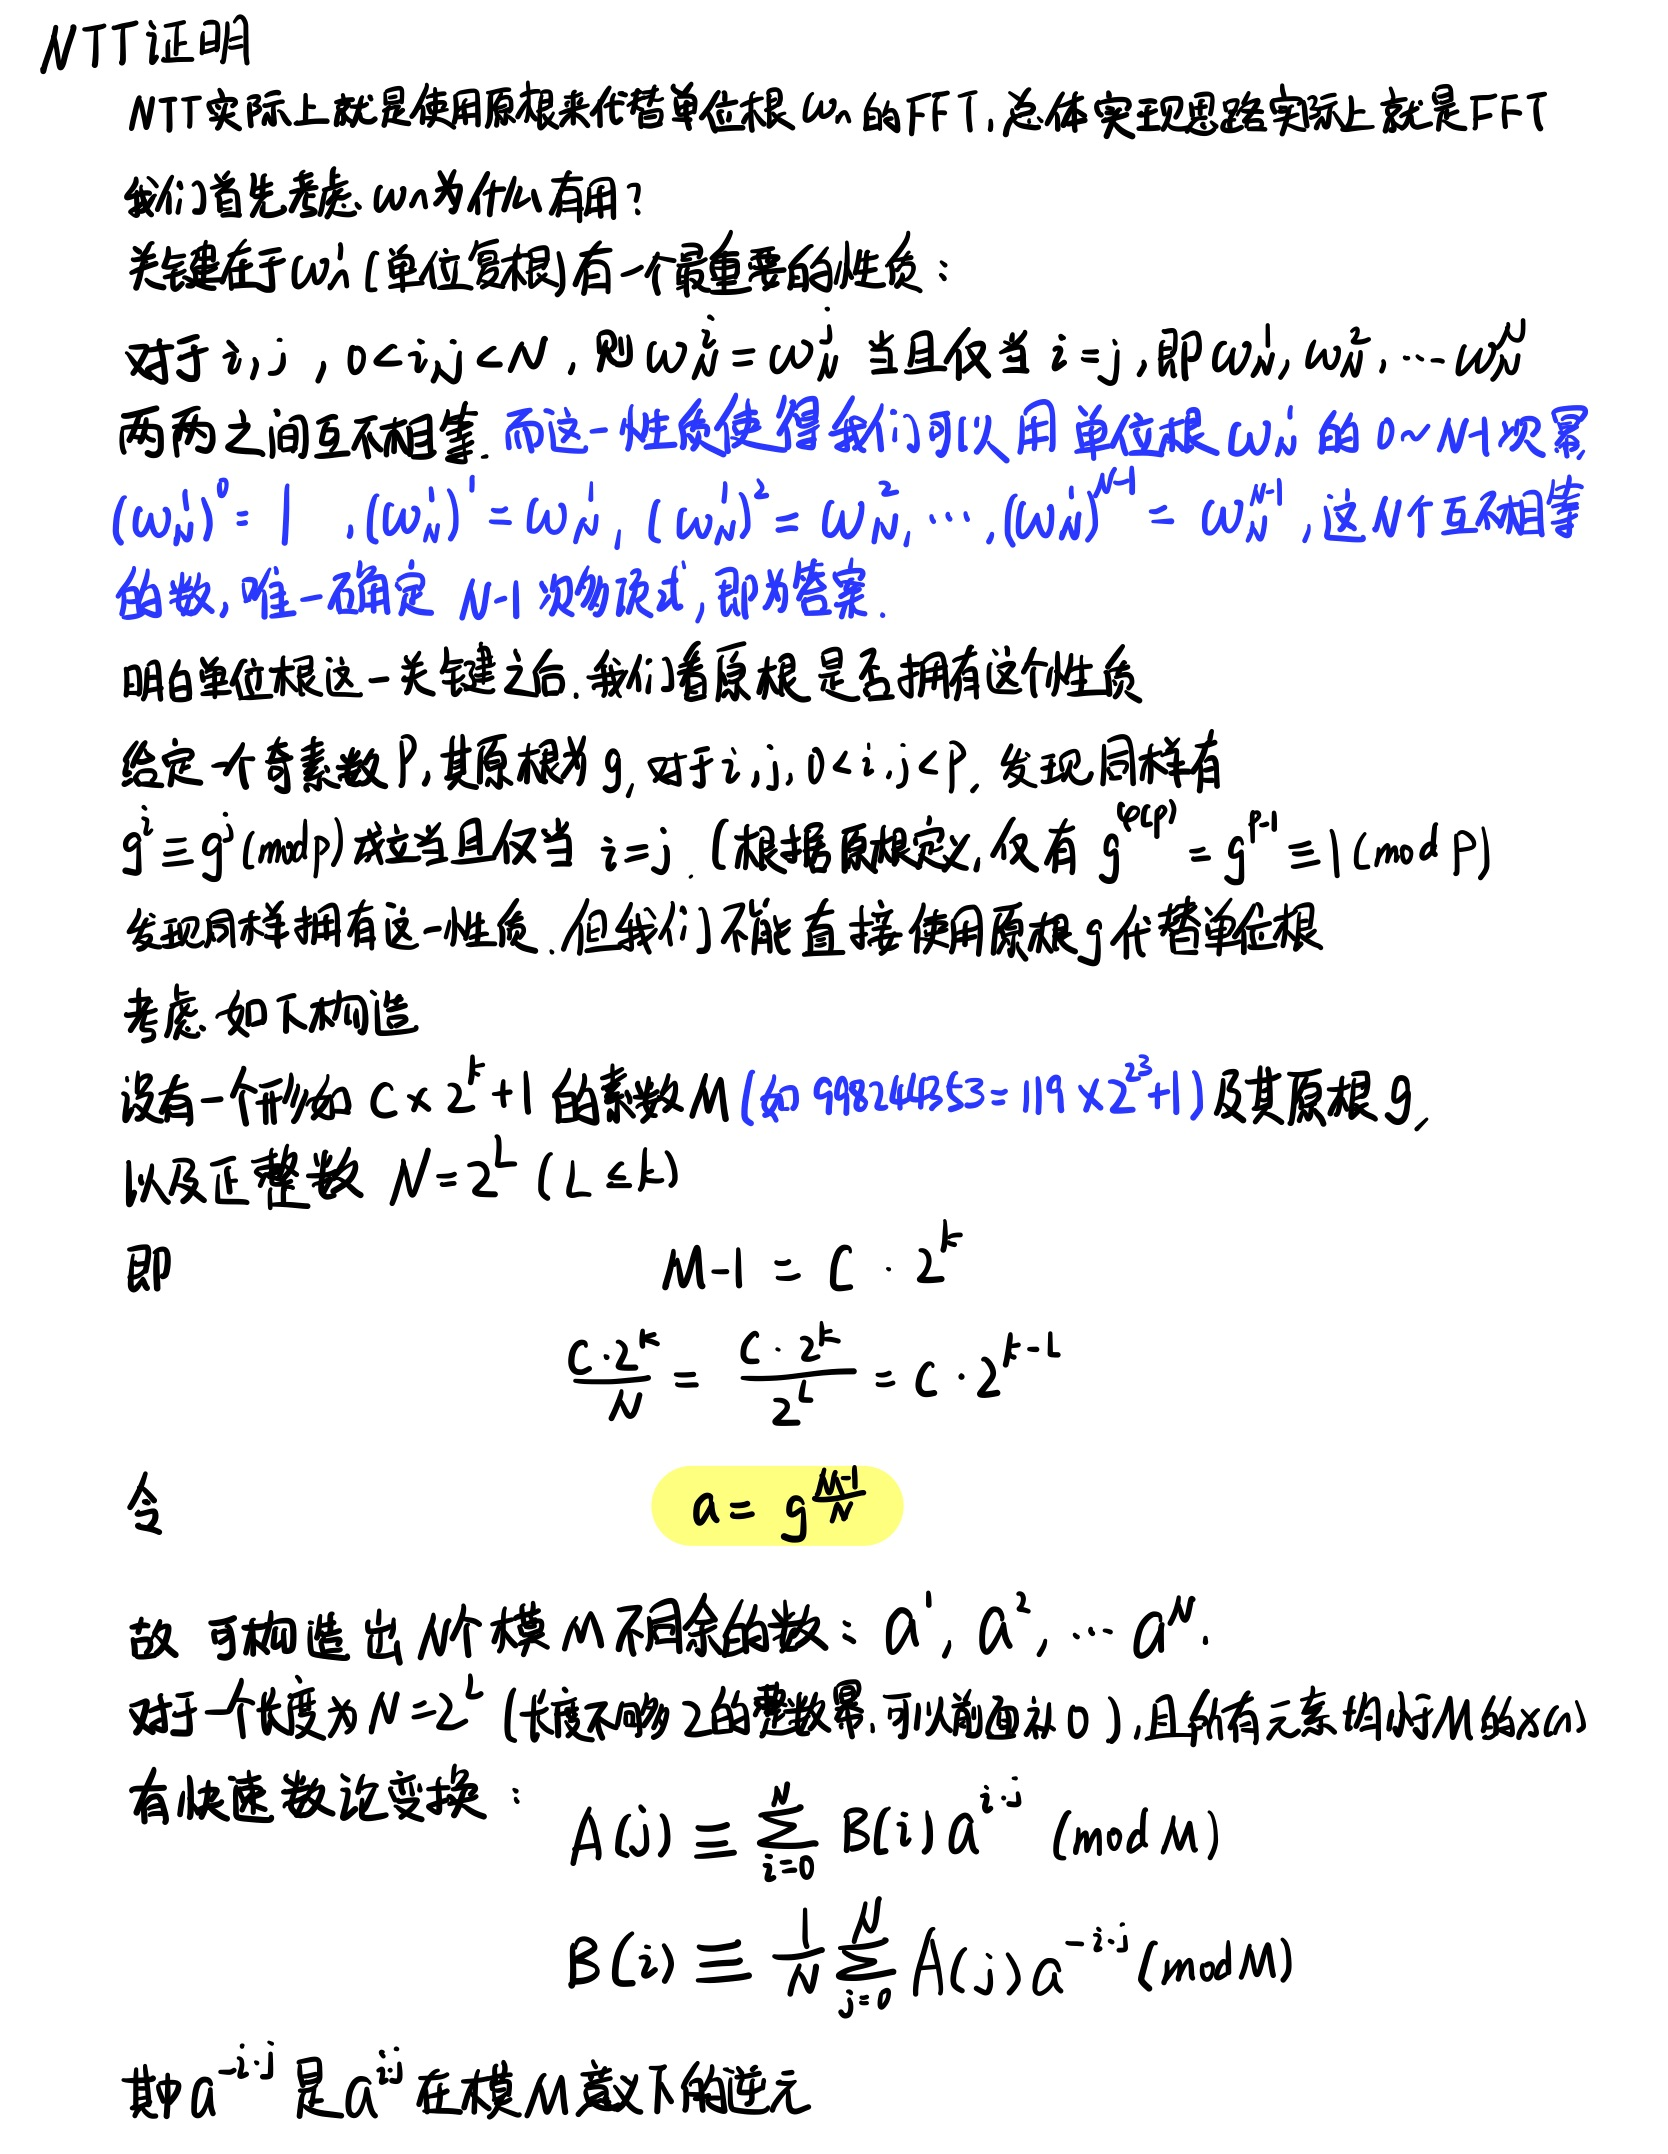 NTT证明
NTT实际上就是使用原根来代替单位根 ωn 的FFT,总体实现思路实际上就是FFT
我们首先考虑 ωn为什么有用?
关键在于ωn^1 (单位复根)有一个最重要的性质:
对于 i,j , 0<i,j<N , 则 ω_N^i = ω_N^j 当且仅当 i=j ,即 ω_N^1, ω_N^2, … ω_N^N
两两之间互不相等. 而这一性质使得我们可以用单位根 ω_N^1 的 0~N-1次幂
(ω_N^1)^0 = 1 , (ω_N^1)^1 = ω_N^1, (ω_N^1)^2 = ω_N^2, …, (ω_N^1)^{N-1} = ω_N^{N-1}, 这N个互不相等
的数, 唯一确定 N-1 次多项式, 即为答案.
明白单位根这一关键之后.我们看原根是否拥有这个性质
给定一个奇素数P, 其原根为g, 对于i,j, 0<i,j<P, 发现同样有
g^i ≡ g^j (mod p) 成立当且仅当 i=j . (根据原根定义, 仅有 g^{φ(p)} = g^{p-1} ≡ 1 (mod P)
发现同样拥有这一性质.但我们不能直接使用原根g代替单位根
考虑如下构造
设有一个形如 C×2^k+1 的素数M(如 998244353=119×2^23+1)及其原根g,
以及正整数 N=2^L (L≤k)
即 M-1 = C·2^k
C·2^k/N = C·2^k/2^L = C·2^{k-L}
令 a = g^{(M-1)/N}
故可构造出N个模M不同余的数: a^1, a^2, … a^N.
对于一个长度为N=2^L (长度不够2的整数幂,可以前面补0), 且所有元素均小于M的x(n)
有快速数论变换:
A(j) ≡ ∑_{i=0}^{N} B(i) a^{i·j} (mod M)
B(i) ≡ 1/N ∑_{j=0}^{N} A(j) a^{-i·j} (mod M)
其中a^{-i·j} 是 a^{i·j} 在模M意义下的逆元